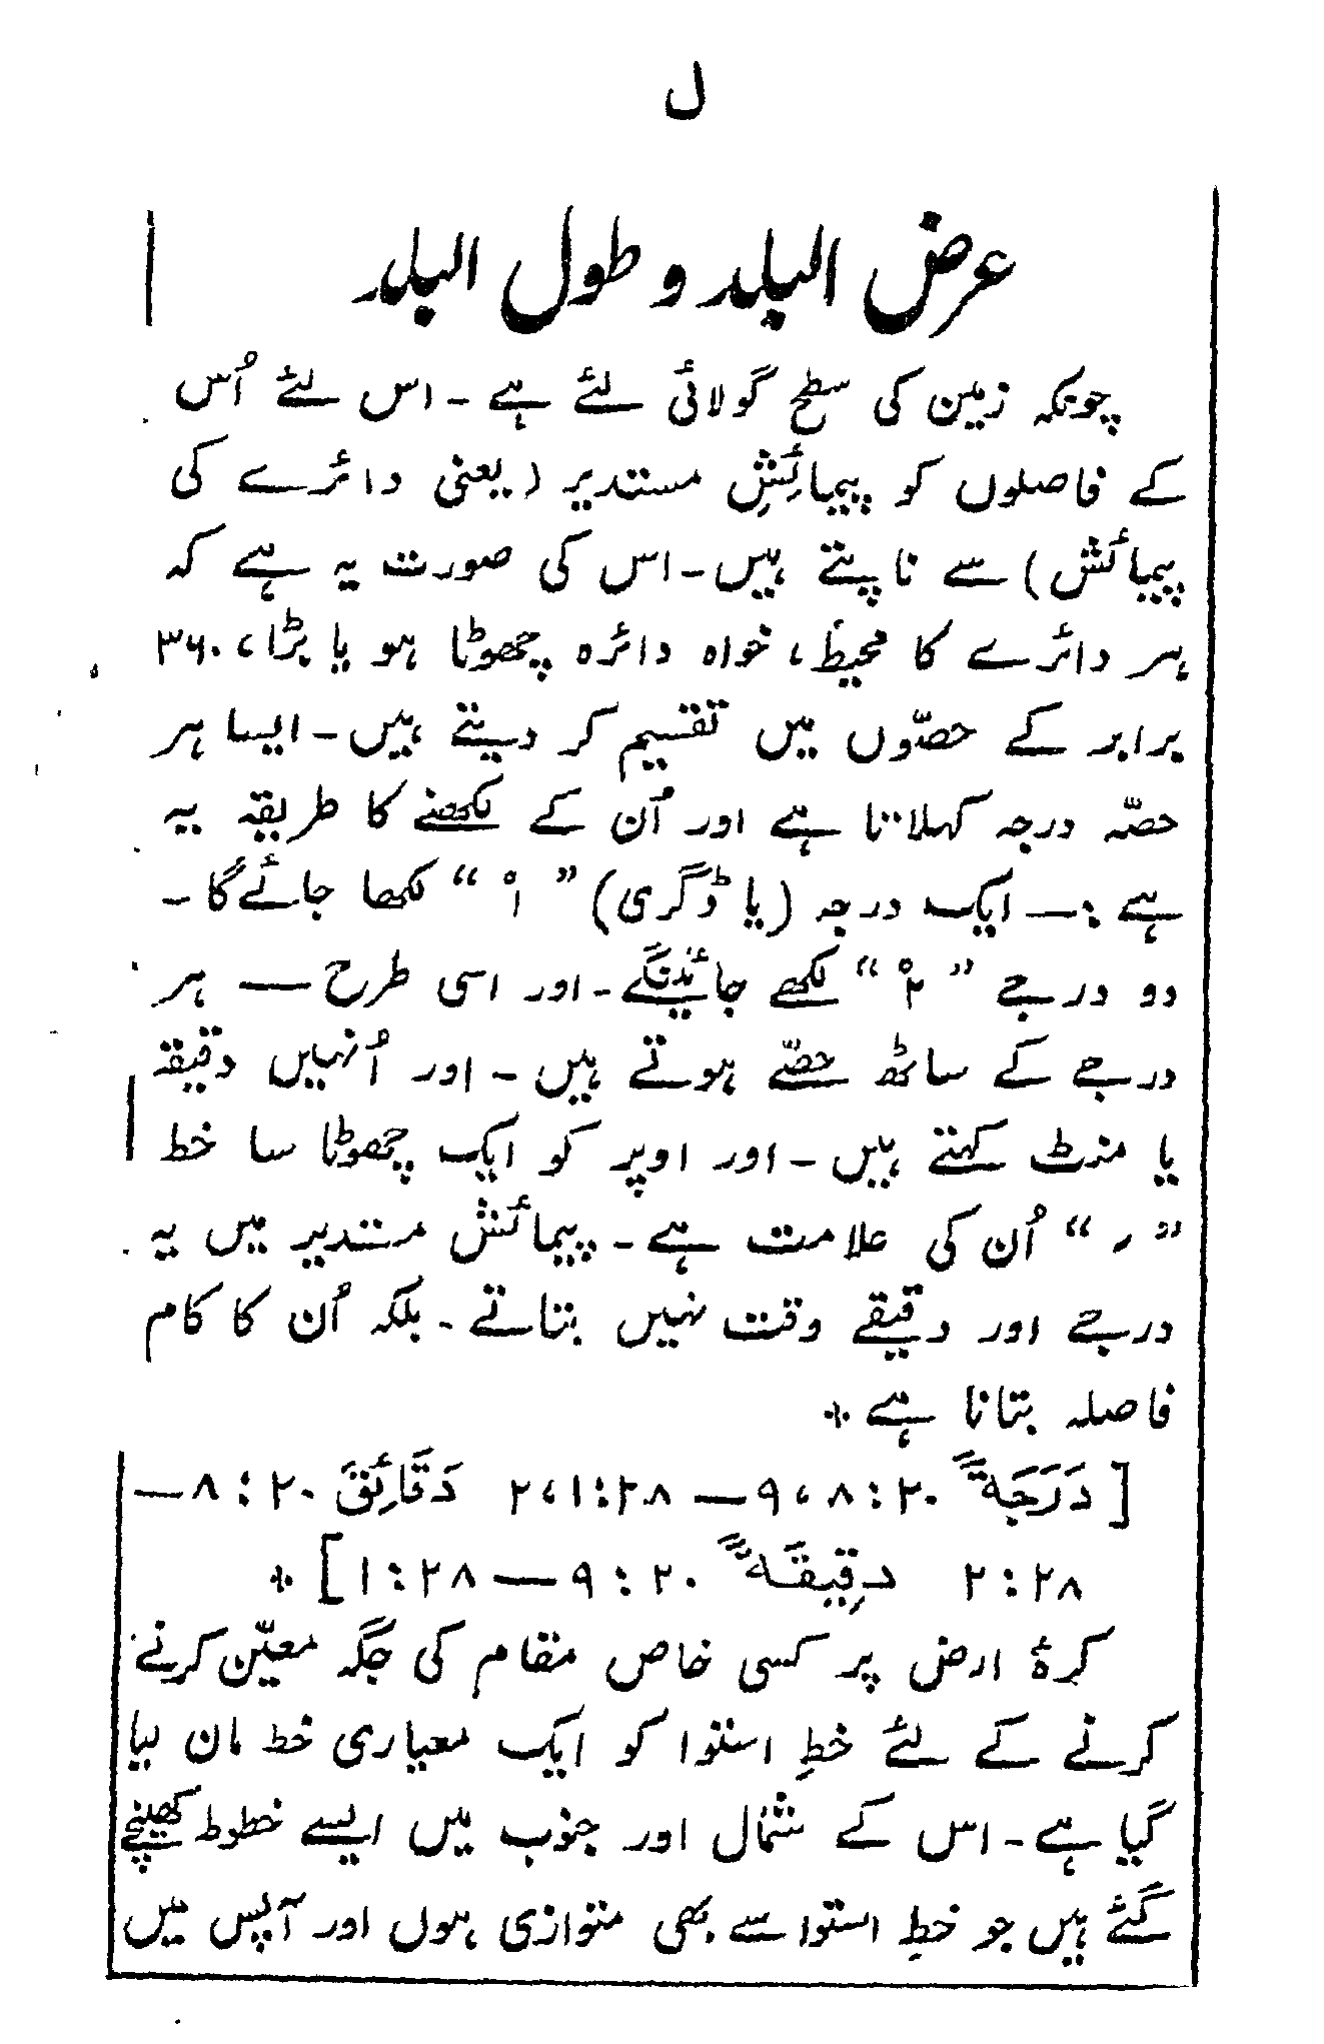 ل
عرض البلد و طول البلد
چونکہ زمین کی سطح گولائی لئے ہے ۔ اس لئے اُس
کے فاصلوں کو پیمائشِ مستدیر (یعنی دائرے کی
پیمائش) سے ناپتے ہیں ۔ اس کی صورت یہ ہے کہ
ہر دائرے کا محیط، خواہ دائرہ چھوٹا ہو یا بڑا، ۳۶۰
برابر کے حصّوں میں تقسیم کر دیتے ہیں ۔ ایسا ہر
حصّہ درجہ کہلاتا ہے اور اُن کے لکھنے کا طریقہ یہ
ہے :— ایک درجہ (یا ڈگری) ”۱°“ لکھا جائے گا ۔
دو درجے ”۲°“ لکھے جائینگے ۔ اور اسی طرح — ہر
درجے کے ساٹھ حصّے ہوتے ہیں ۔ اور اُنہیں دقیقہ
یا منٹ کہتے ہیں ۔ اور اوپر کو ایک چھوٹا سا خط
”׳“ اُن کی علامت ہے ۔ پیمائش مستدیر میں یہ
درجے اور دقیقے وقت نہیں بتاتے ۔ بلکہ اُن کا کام
فاصلہ بتانا ہے ٭
[دَرَجَةً ۸:۲۰، ۹— ۱:۲۸، ۲ دَقَائِقَ ۸:۲۰—
۲:۲۸ دِقِیقَةً ۹:۲۰—۱:۲۸] ٭
کرۂ ارض پر کسی خاص مقام کی جگہ معیّن کرنے
کرنے کے لئے خطِ استوا کو ایک معیاری خط مان لیا
گیا ہے ۔ اس کے شمال اور جنوب میں ایسے خطوط کھینچے
گئے ہیں جو خطِ استوا سے بھی متوازی ہوں اور آپس میں